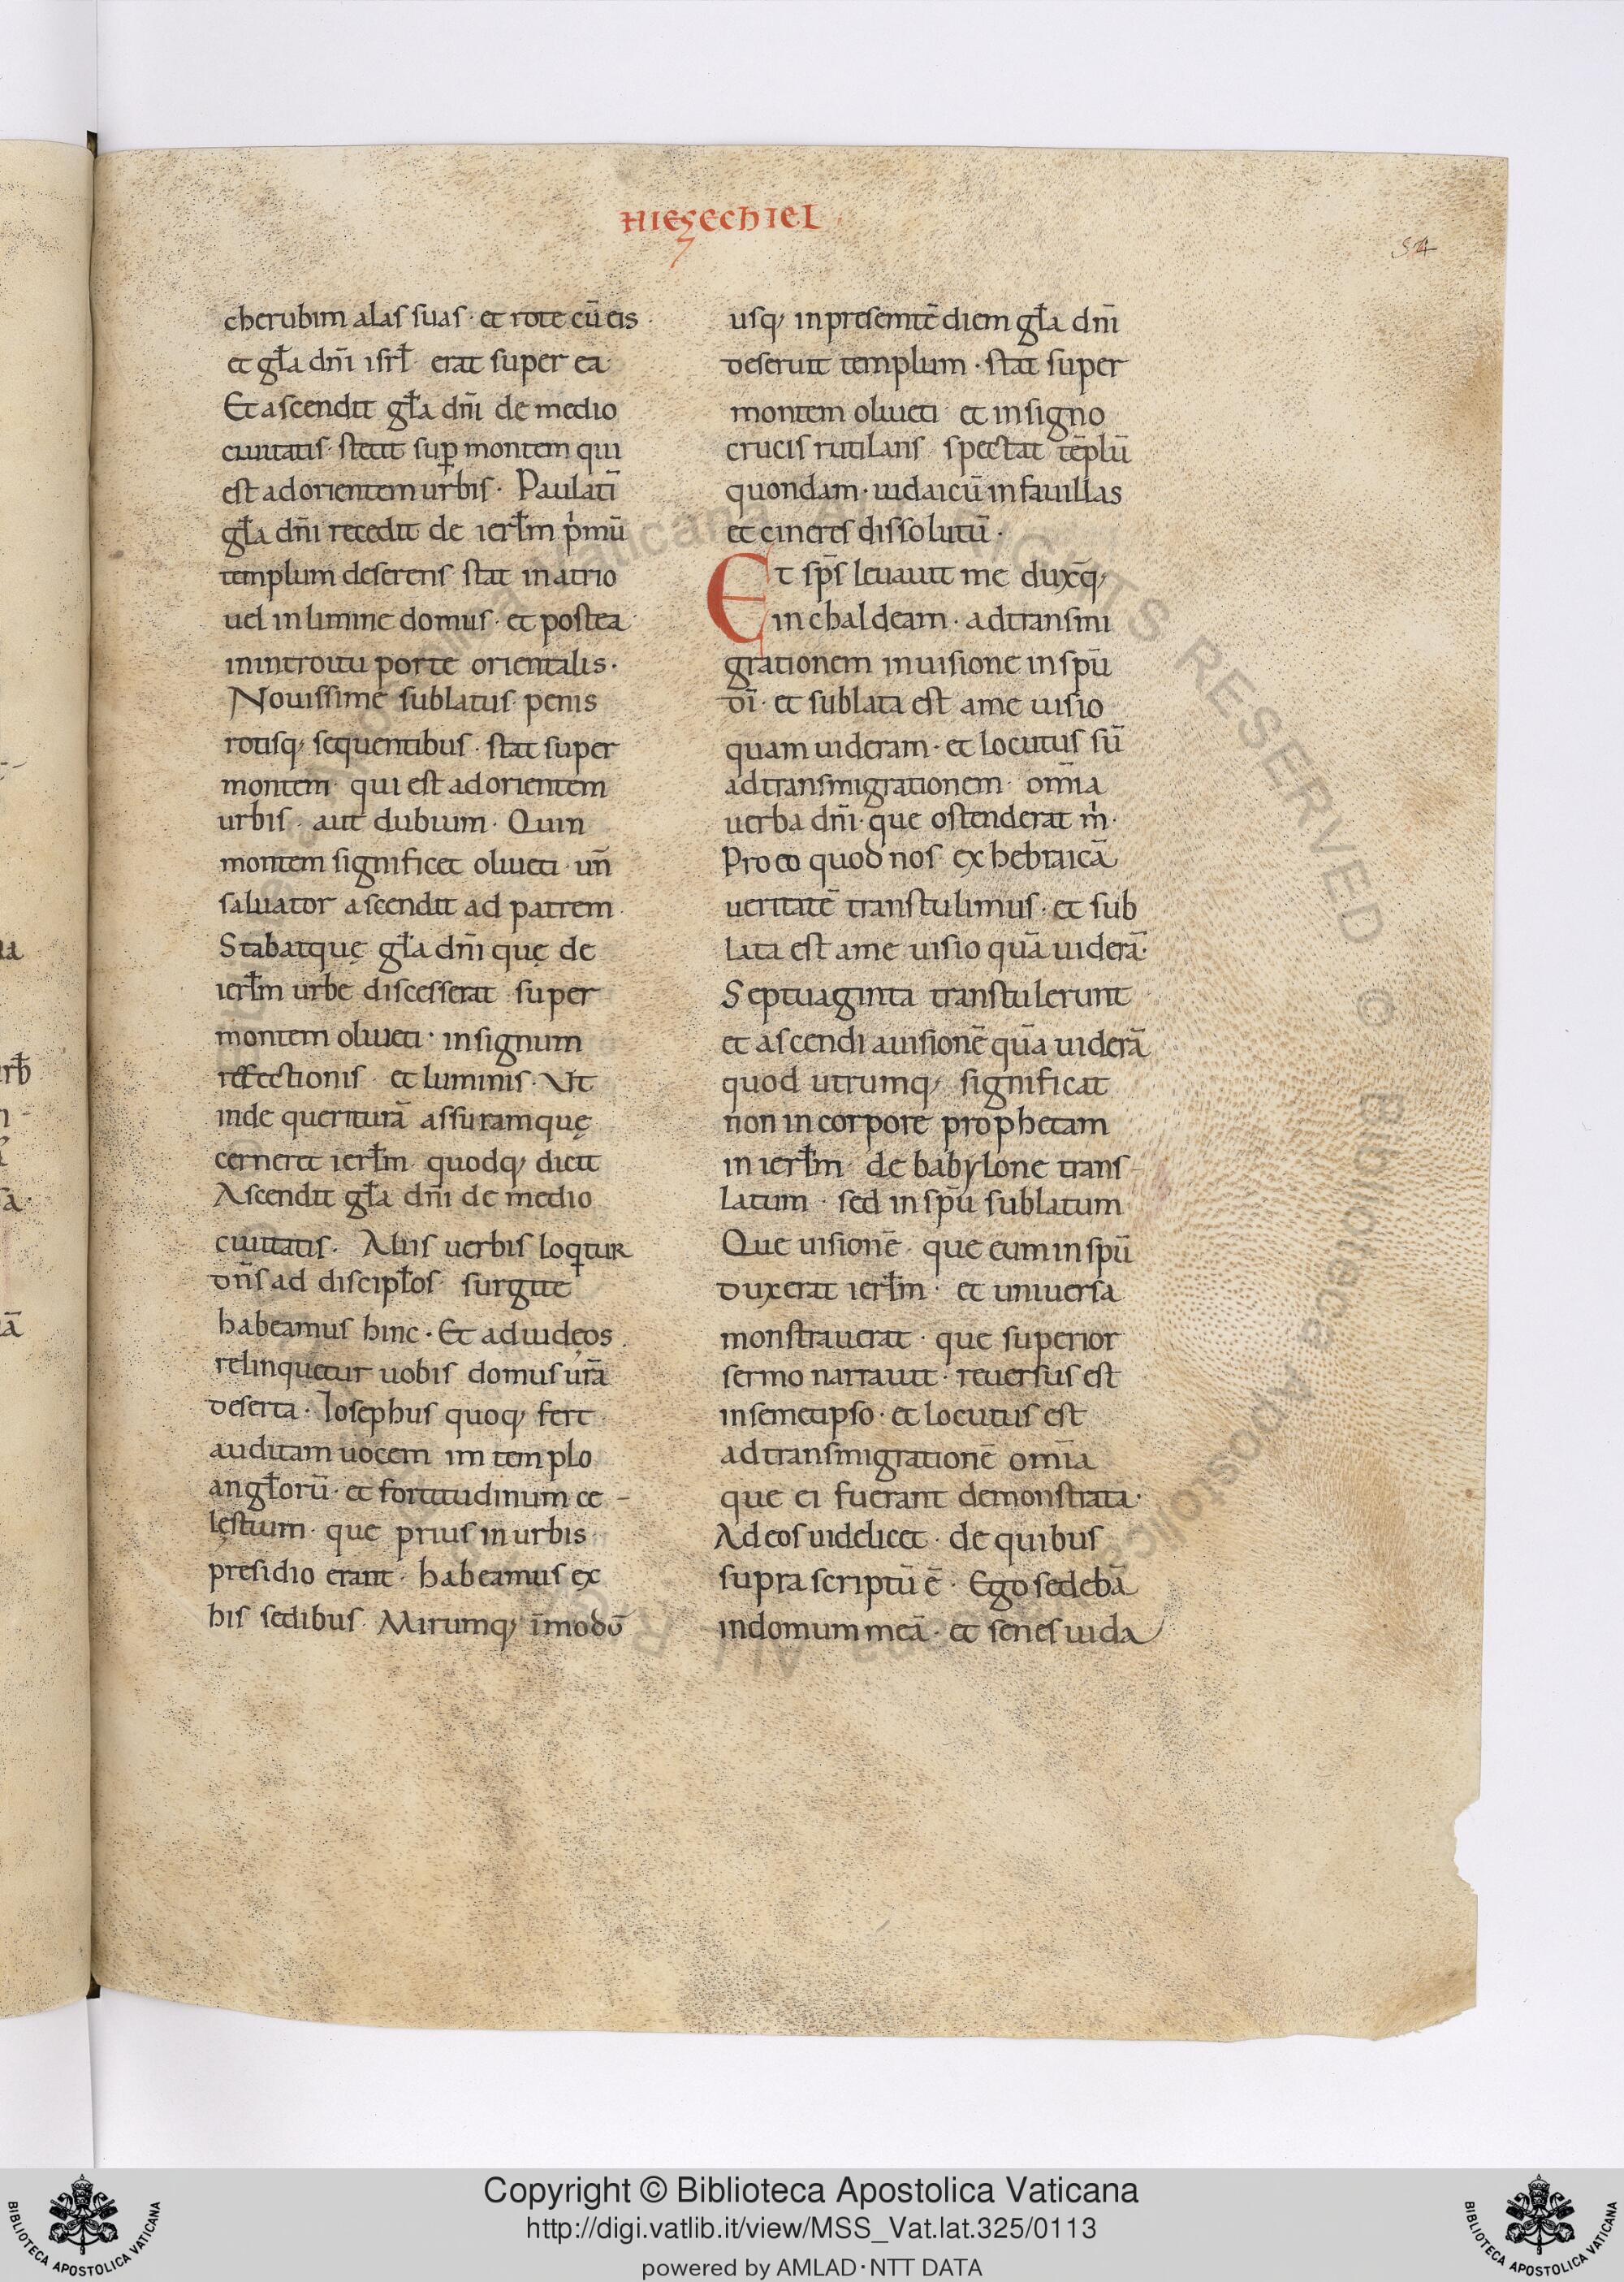 HIEZECHIEL
54
cherubim alas suas · et rote cū eis ·
et gła dn̄i isrł · erat super ea ·
Et ascendit gła dn̄i de medio
ciuitatis · stetit sup̱ montem qui
est ad orientem urbis · Paulatī
gła dn̄i recedit de ierłm pͥmū
templum deserens stat in atrio
uel in limine domus · et postea
in introitu porte orientalis ·
Nouissime sublatus · penis
rotisq; sequentibus · stat super
montem · qui est ad orientem
urbis · aut dubium · Quin
montem significet oliueti · un̄
saluator ascendit ad patrem ·
Stabatquę gła dn̄i quę de
ierłm urbe discesserat super
montem oliueti · in signum
reffectionis · et luminis · Ut
inde queriturā assuramquę
cerneret ierłm · quodq; dicit
Ascendit gła dn̄i de medio
ciuitatis · Aliis uerbis loq̱tur
dn̄s ad discipłos · surgite
habeamus hinc · Et ad uidęos ·
relinquetur uobis domus ur̄a
deserta · Iosephus quoq; fert
auditam uocem im templo
angłorū · et fortitudinum ce-
lęstium · que prius in urbis
presidio erant · habeamus ex
his sedibus · Mirumq; ī modō
usq; in presemtē diem gła dn̄i
deseruit templum · stat super
montem oliueti · et in signo
crucis rutilans · spectat tēplū
quondam · iudaicū in fauillas
et cineres dissolutū ·
Et sp̄s leuauit me duxq̄;
in chaldeam · ad transmi
grationem in uisione in sp̄u
dī · et sublata est a me uisio
quam uideram · et locutus sū
ad transmigrationem · om̄ia
uerba dn̄i · que ostenderat mͥ ·
Pro eo quod nos · ex hebraicā
ueritatē transtulimus · et sub
lata est a me uisio quā uiderā ·
Septuaginta transtulerunt
et ascendi a uisionē quā uiderā
quod utrumq; significat
non in corpore prophetam
in ierłm · de babylone trans-
latum · sed in sp̄u sublatum
Que uisionē · que eum in sp̄u
duxerat ierłm · et uniuersa
monstrauerat · que superior
sermo narrauit · reuersus est
in semetipso · et locutus est
ad transmigrationē om̄ia
que ei fuerant demonstrata ·
Ad eos uidelicet · de quibus
supra scriptū ē · Ego sedebā
in domum meā · et senes iuda
Copyright © Biblioteca Apostolica Vaticana
http://digi.vatlib.it/view/MSS_Vat.lat.325/0113
powered by AMLAD·NTT DATA
BIBLIOTECA APOSTOLICA VATICANA
BIBLIOTECA APOSTOLICA VATICANA